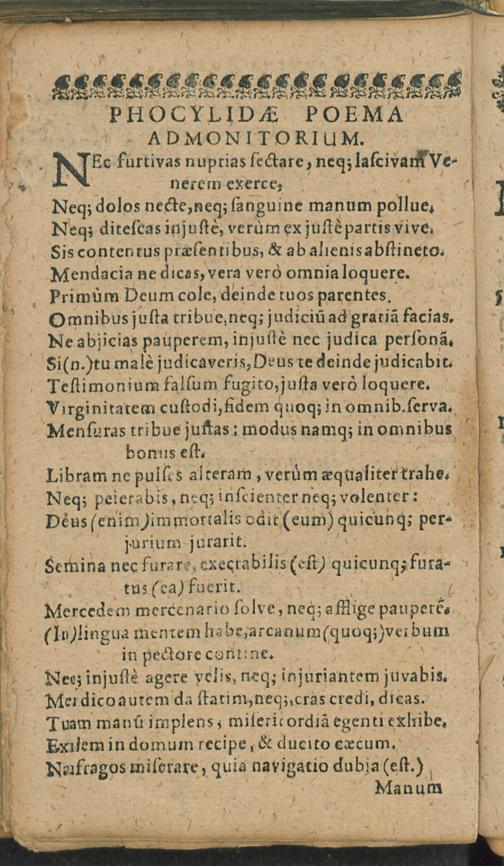 PHOCYLIDÆ POEMA
ADMONITORIUM.
NEc furtivas nuptias ſectare, neq; laſcivam Ve-
nerem exerce,
Neq; dolos necte, neq; ſanguine manum pollue.
Neq; diteſcas injuſtè, verùm ex juſtè partis vive.
Sis contentus præſentibus, & ab alienis abſtineto.
Mendacia ne dicas, vera verò omnia loquere.
Primùm Deum cole, deinde tuos parentes.
Omnibus juſta tribue, neq; judiciũ ad gratiã facias.
Ne abjicias pauperem, injuſtè nec judica perſonã.
Si(n.)tu malè judicaveris, Deus te deinde judicabit.
Teſtimonium falſum fugito, juſta verò loquere.
Virginitatem cuſtodi, fidem quoq; in omnib. ſerva.
Menſuras tribue juſtas: modus namq; in omnibus
bonus eſt.
Libram ne pulſes alteram, verùm æqualiter trahe.
Neq; peierabis, neq; inſcienter neq; volenter:
Deus (enim) immortalis odit (eum) quicunq; per-
jurium jurarit.
Semina nec furare, execrabilis (eſt) quicunq; fura-
tus (ea) fuerit.
Mercedem mercenario ſolve, neq; afflige pauperẽ.
(In) lingua mentem habe, arcanum (quoq;) verbum
in pectore contine.
Nec; injuſtè agere velis, neq; injuriantem juvabis.
Mendico autem da ſtatim, neq;, cras credi, dicas.
Tuam manũ implens, miſericordiã egenti exhibe.
Exulem in domum recipe, & ducito cæcum.
Naufragos miſerare, quia navigatio dubia (eſt.)
Manum